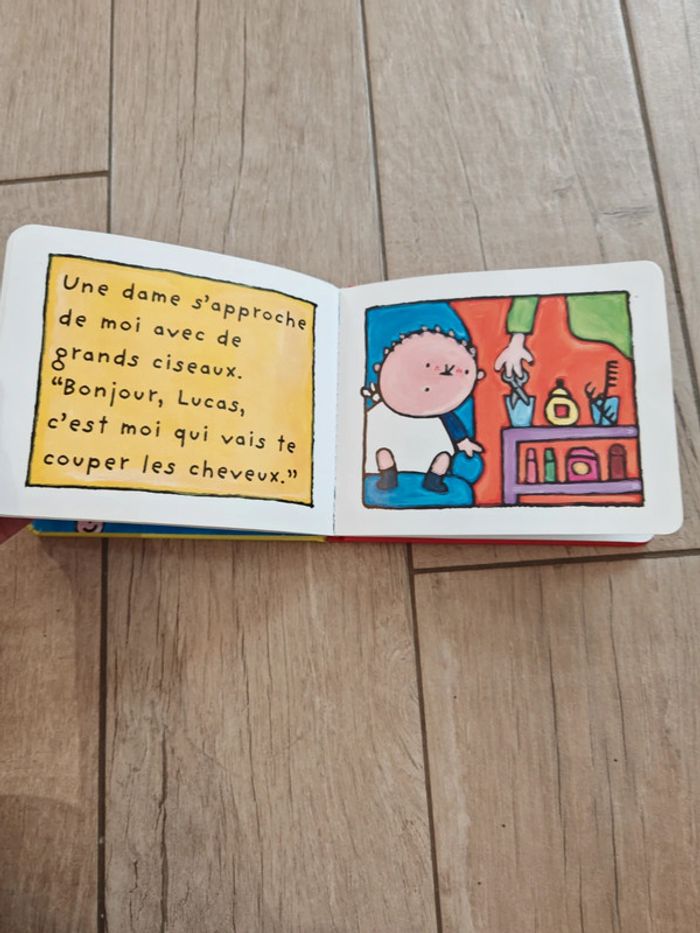 Une dame s'approche
de moi avec de
grands ciseaux.
“Bonjour, Lucas,
c'est moi qui vais te
couper les cheveux.”